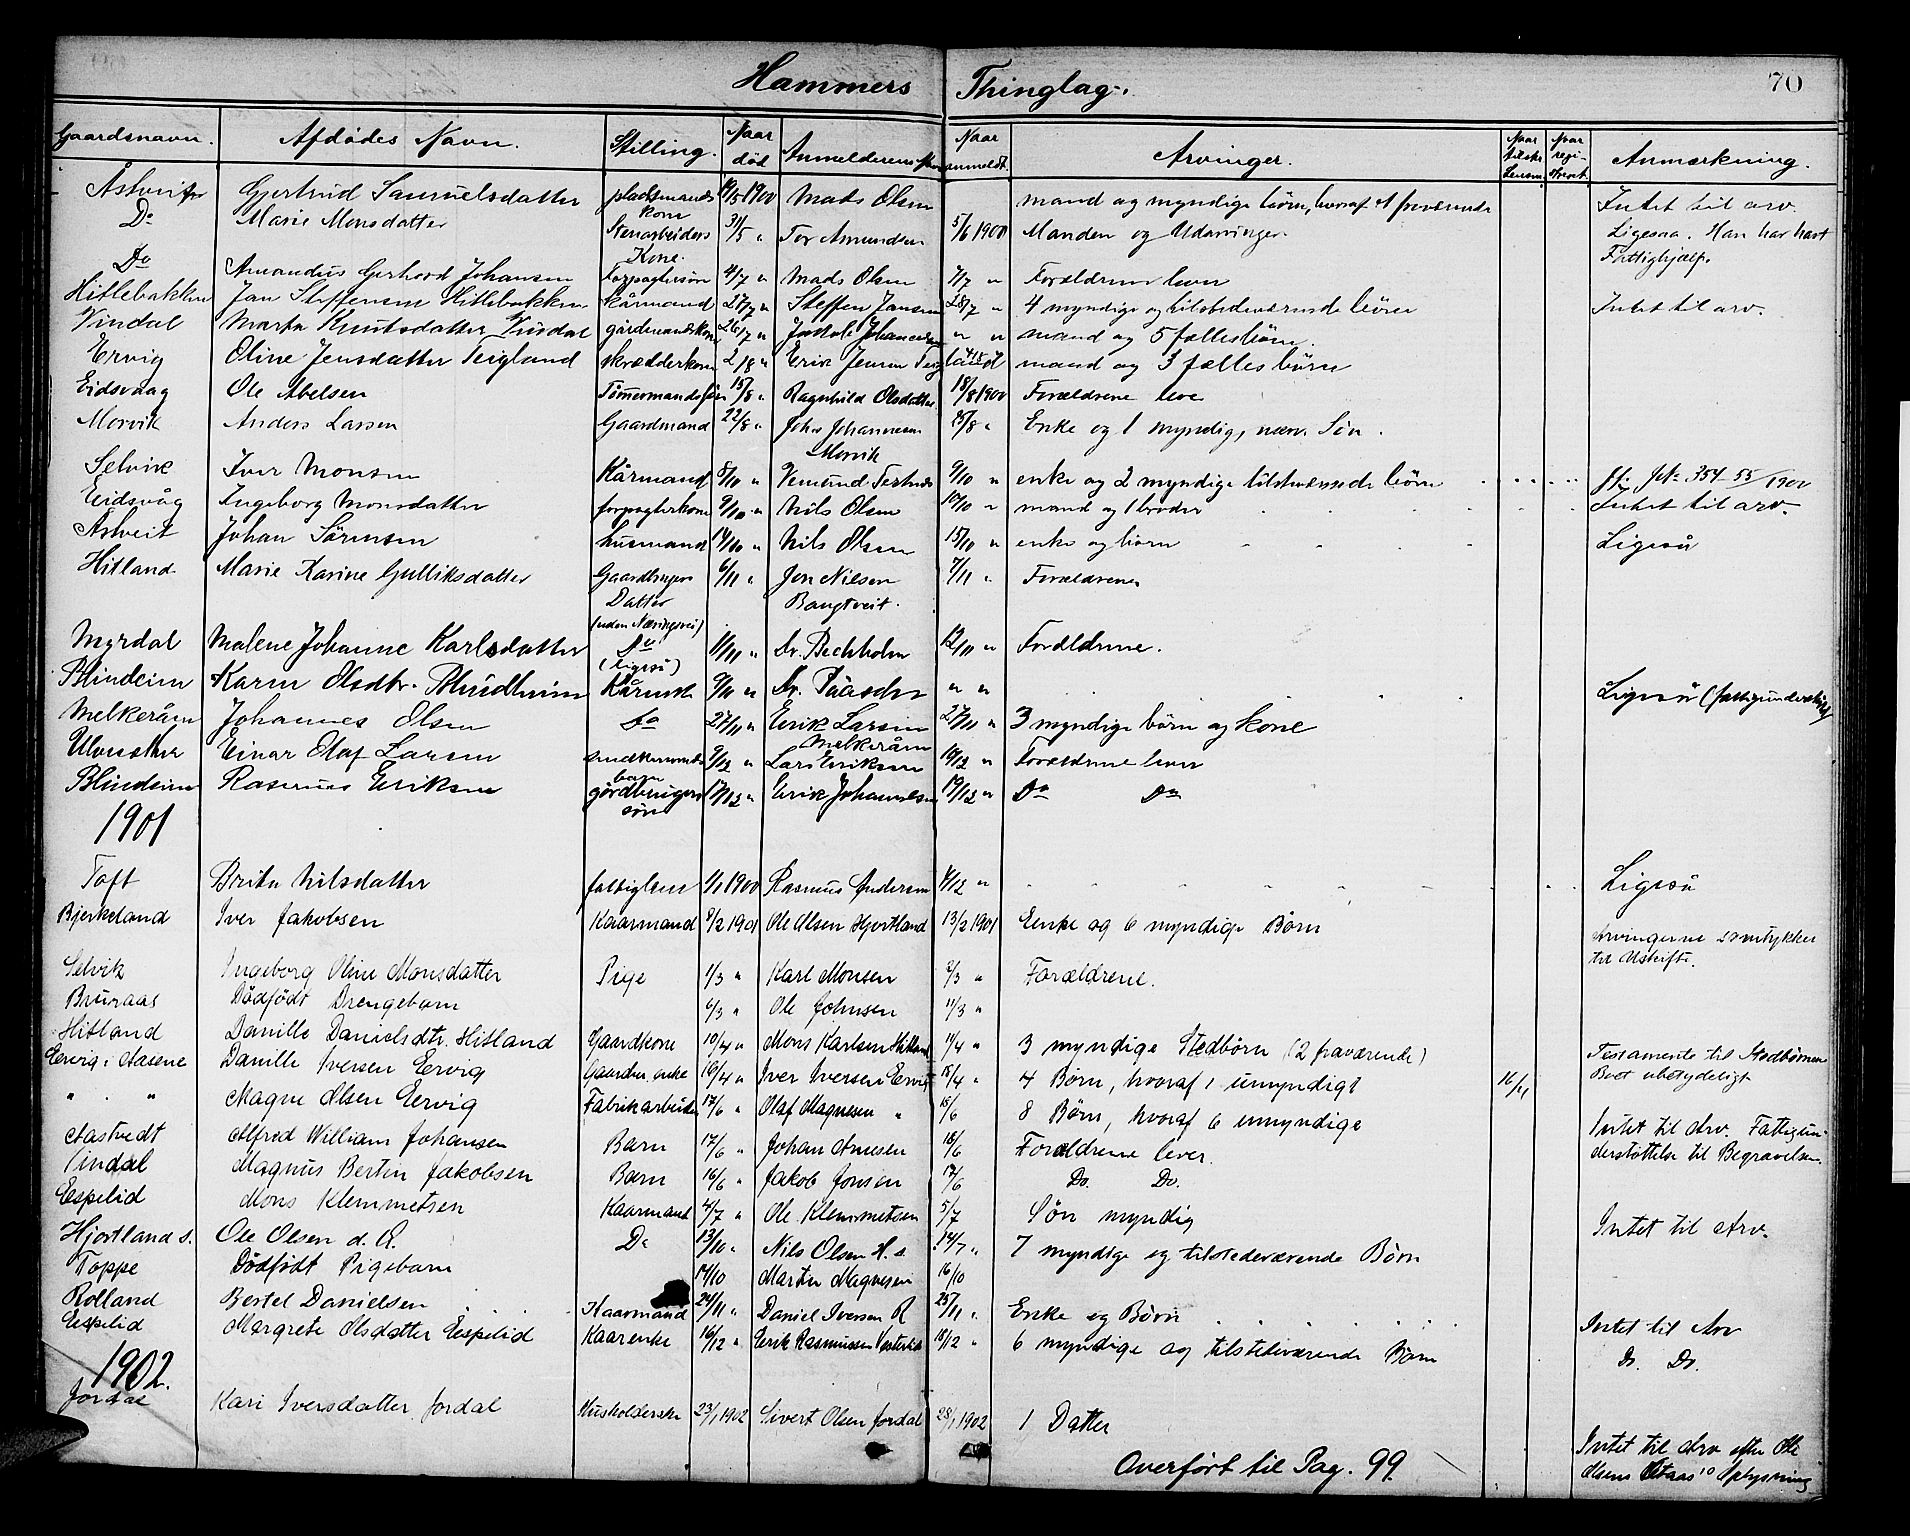 Hammers Thinglag.
70
Gaardsnavn. Afdødes Navn. Stilling. Naar død Anmelderens Naar anmeldt. Arvinger. Naar tilskr. Lensm. Naar regi- streret Anmærkning.
Åstveit Gjertrud Samuelsdatter pladsmands kone 19/5 1900 Mads Olsen mand og myndige børn, hvoraf 1 fraværende Intet til arv.
Do Marie Monsdatter Stenarbeiders Kone. 31/5 " Tor Amundsen 5/6 1900 Manden og Udarvinger Ligesaa. Han har havt Fattighjælp.
Do Amandus Gerhard Johansen Forpagtersøn 4/7 " Mads Olsen 7/7 " Forældrene lever
Hitlebakken Jan Steffensen Hitlebakken kårmand 27/7 " Steffen Jansen 28/7 " 4 myndige og tilstedeværende børn Intet til arv.
Vindal Marta Knutsdatter Vindal gårdmandskone 26/7 " Jakob Johannesen " " mand og 5 fællesbørn.
Ervig Oline Jensdatter Teigland skrædderkone 2/8 " Erik Jensen Teigland mand og 3 fællesbørn
Eidsvaag Ole Abelsen Tømmermandssøn 15/8 " Ragnhild Olsdatter 18/8 1900 Forældrene leve
Morvik Anders Larsen Gaardmand 22/8 " Johs Johannesen Morvik 25/8 " Enke og 1 myndig, nærv. Søn.
Selvik Iver Monsen Kårmand 8/10 " Vemund Tertnes 9/10 " enke og 2 myndige tilstedeværende børn jfr. Jr. 354-55/1900
Eidsvåg Ingeborg Monsdatter forpagterkone 9/10 " Nils Olsen 10/10 " mand og 1 broder Intet til arv.
Åstveit Johan Sørensen husmand 14/10 " Nils Olsen 15/10 " enke og børn Ligeså
Hitland Marie Karine Gulliksdatter Gaardbrugers Datter (uden Næringsvei) 6/11 " Jon Nilsen Bangtveit. 7/11 " Forældrene
Myrdal Malene Johanne Karlsdatter Do (ligeså) 11/11 " Dr. Bechholm 12/11 " Forældrene.
Blindeim Karen Olsdtr. Blindheim Kårensk 9/11 " Dr. Paasche " " Ligeså (fattigunderstøttet)
Melkeråen Johannes Olsen do 27/11 " Eerik Larsen Melkeråen 27/11 " 3 myndige børn og kone
Ulvesether Einar Olaf Larsen smedkermands barn 9/12 " Lars Eriksen 10/12 " Forældrene lever
Blindeim Rasmus Eeriksen gårdbrugers søn 17/12 " Eerik Johannesen 19/12 " Do Do
1901
Toft Brita Nilsdatter fattiglem 1/1 1900 Rasmus Andersen 4/12 " Ligeså
Bjerkeland Iver Jakobsen Kaarmand 8/2 1901 Ole Olsen Hjortland 13/2 1901 Eenke og 6 myndige Børn Arvingerne samtykker til Uskifte.
Selvik Ingeborg Oline Monsdatter Pige 1/3 " Karl Monsen 2/3 " Forældrene.
Bruraas Dødfødt Drengebarn 6/3 " Ole Johnsen 11/3 "
Hitland Danille Danielsdtr. Hitland Gaardkone 10/4 " Mons Karlsen Hitland 11/4 " 3 myndige Stedbørn (2 fraværende) Testamente til Stedbørnene
Eervig i Aasene Danille Iversen Eervig Gaardm. enke 16/4 " Iver Iversen Eervig 18/4 " 4 Børn, hvoraf 1 umyndigt 16/4 Boet ubetydeligt
" . " Magne Olsen Eervig Fabrikarbeider 12/6 " Olaf Magnesen " 15/6 8 Børn, hvoraf 6 umyndige
Aastvedt Alfred William Johansen Barn 17/6 " Johan Arnesen 18/6 Forældrene lever. Intet til Arv. Fattigun- derstøttelse til Begravelsen.
Vindal Magnus Bertin Jakobsen Barn 16/6 " Jakob Jonsen 17/6 Do. Do.
Eespelid Mons Klemmetsen Kaarmand 4/7 " Ole Klemmetsen 5/7 Søn myndig Intet til Arv.
Hjortland s. Ole Olsen d. Æ. Do 13/10 " Nils Olsen H. s. 14/7 " 7 myndige og tilstedeværende Børn
Toppe Dødfødt Pigebarn 14/10 Martin Magnesen 16/10
Rolland Bertel Danielsen Kaarmand 24/11 " Daniel Iversen R 25/11 " Enke og Børn Intet til Arv
Eespelid Margrete Olsdatter Eespelid Kaarenke 16/12 " Eerik Rasmussen Vesterlid 18/12 " 6 myndige og tilstedeværende Børn Do. Do.
1902.
Jordal Kari Iversdatter Jordal Husholderske 23/1 1902 Sivert Olsen Jordal 28/1 1902 1 Datter Intet til Arv efter Ole Olsens Opl. Oplysning
Overført til Pag. 99.